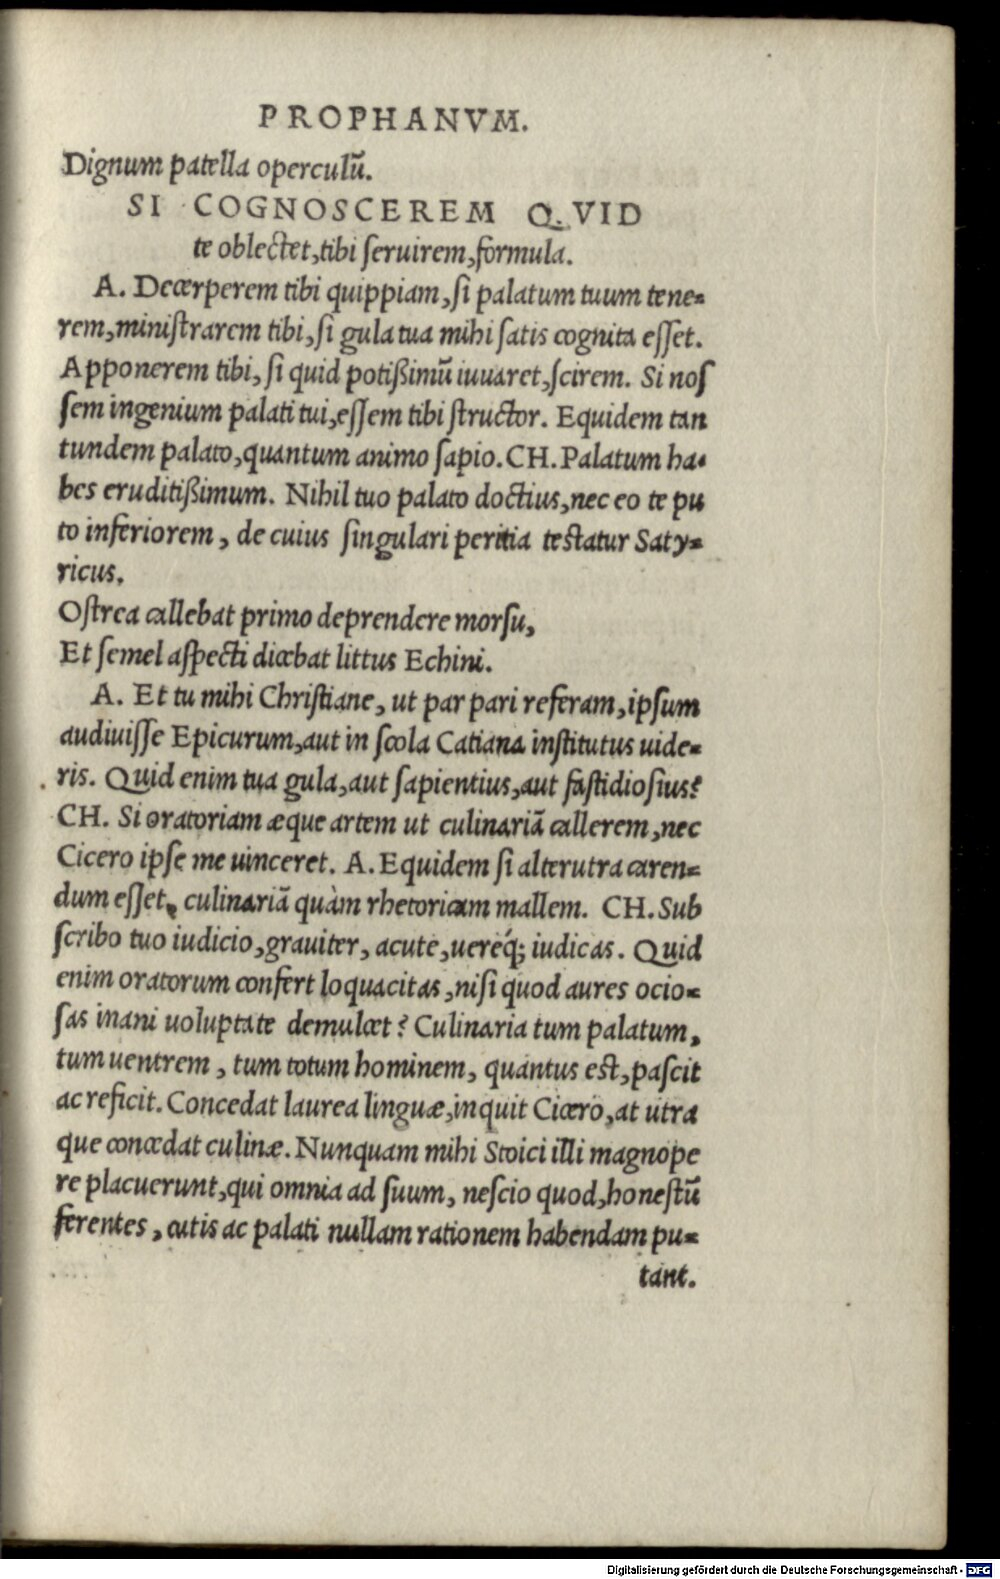 PROPHANVM.
Dignum patella operculū.
SI COGNOSCEREM Q.VID
te oblectet,tibi ſeruirem,formula.
A. Decerperem tibi quippiam,ſi palatum tuum tene=
rem,miniſtrarem tibi,ſi gula tua mihi ſatis cognita eſſet.
Apponerem tibi, ſi quid potißimū iuuaret,ſcirem. Si noſ
ſem ingenium palati tui,eſſem tibi ſtructor. Equidem tan
tundem palato,quantum animo ſapio.CH.Palatum ha=
bes eruditißimum. Nihil tuo palato doctius,nec eo te pu
to inferiorem, de cuius ſingulari peritia teſtatur Saty=
ricus.
Oſtrea callebat primo deprendere morſu,
Et ſemel aſpecti dicebat littus Echini.
A. Et tu mihi Chriſtiane, ut par pari referam,ipſum
audiuiſſe Epicurum,aut in ſcola Catiana inſtitutus uide=
ris. Quid enim tua gula,aut ſapientius,aut faſtidioſius?
CH. Si oratoriam æque artem ut culinariā callerem,nec
Cicero ipſe me uinceret. A. Equidem ſi alterutra caren=
dum eſſet, culinariā quàm rhetoricam mallem. CH. Sub
ſcribo tuo iudicio,grauiter, acute,uereq́; iudicas. Quid
enim oratorum confert loquacitas,niſi quod aures ocio=
ſas inani uoluptate demulcet? Culinaria tum palatum,
tum uentrem, tum totum hominem, quantus eſt,paſcit
ac reficit. Concedat laurea linguæ,inquit Cicero,at utra
que concedat culinæ. Nunquam mihi Stoici illi magnope
re placuerunt,qui omnia ad ſuum, neſcio quod,honeſtū
ferentes, cutis ac palati nullam rationem habendam pu=
tant.
Digitalisierung gefördert durch die Deutsche Forschungsgemeinschaft - DFG